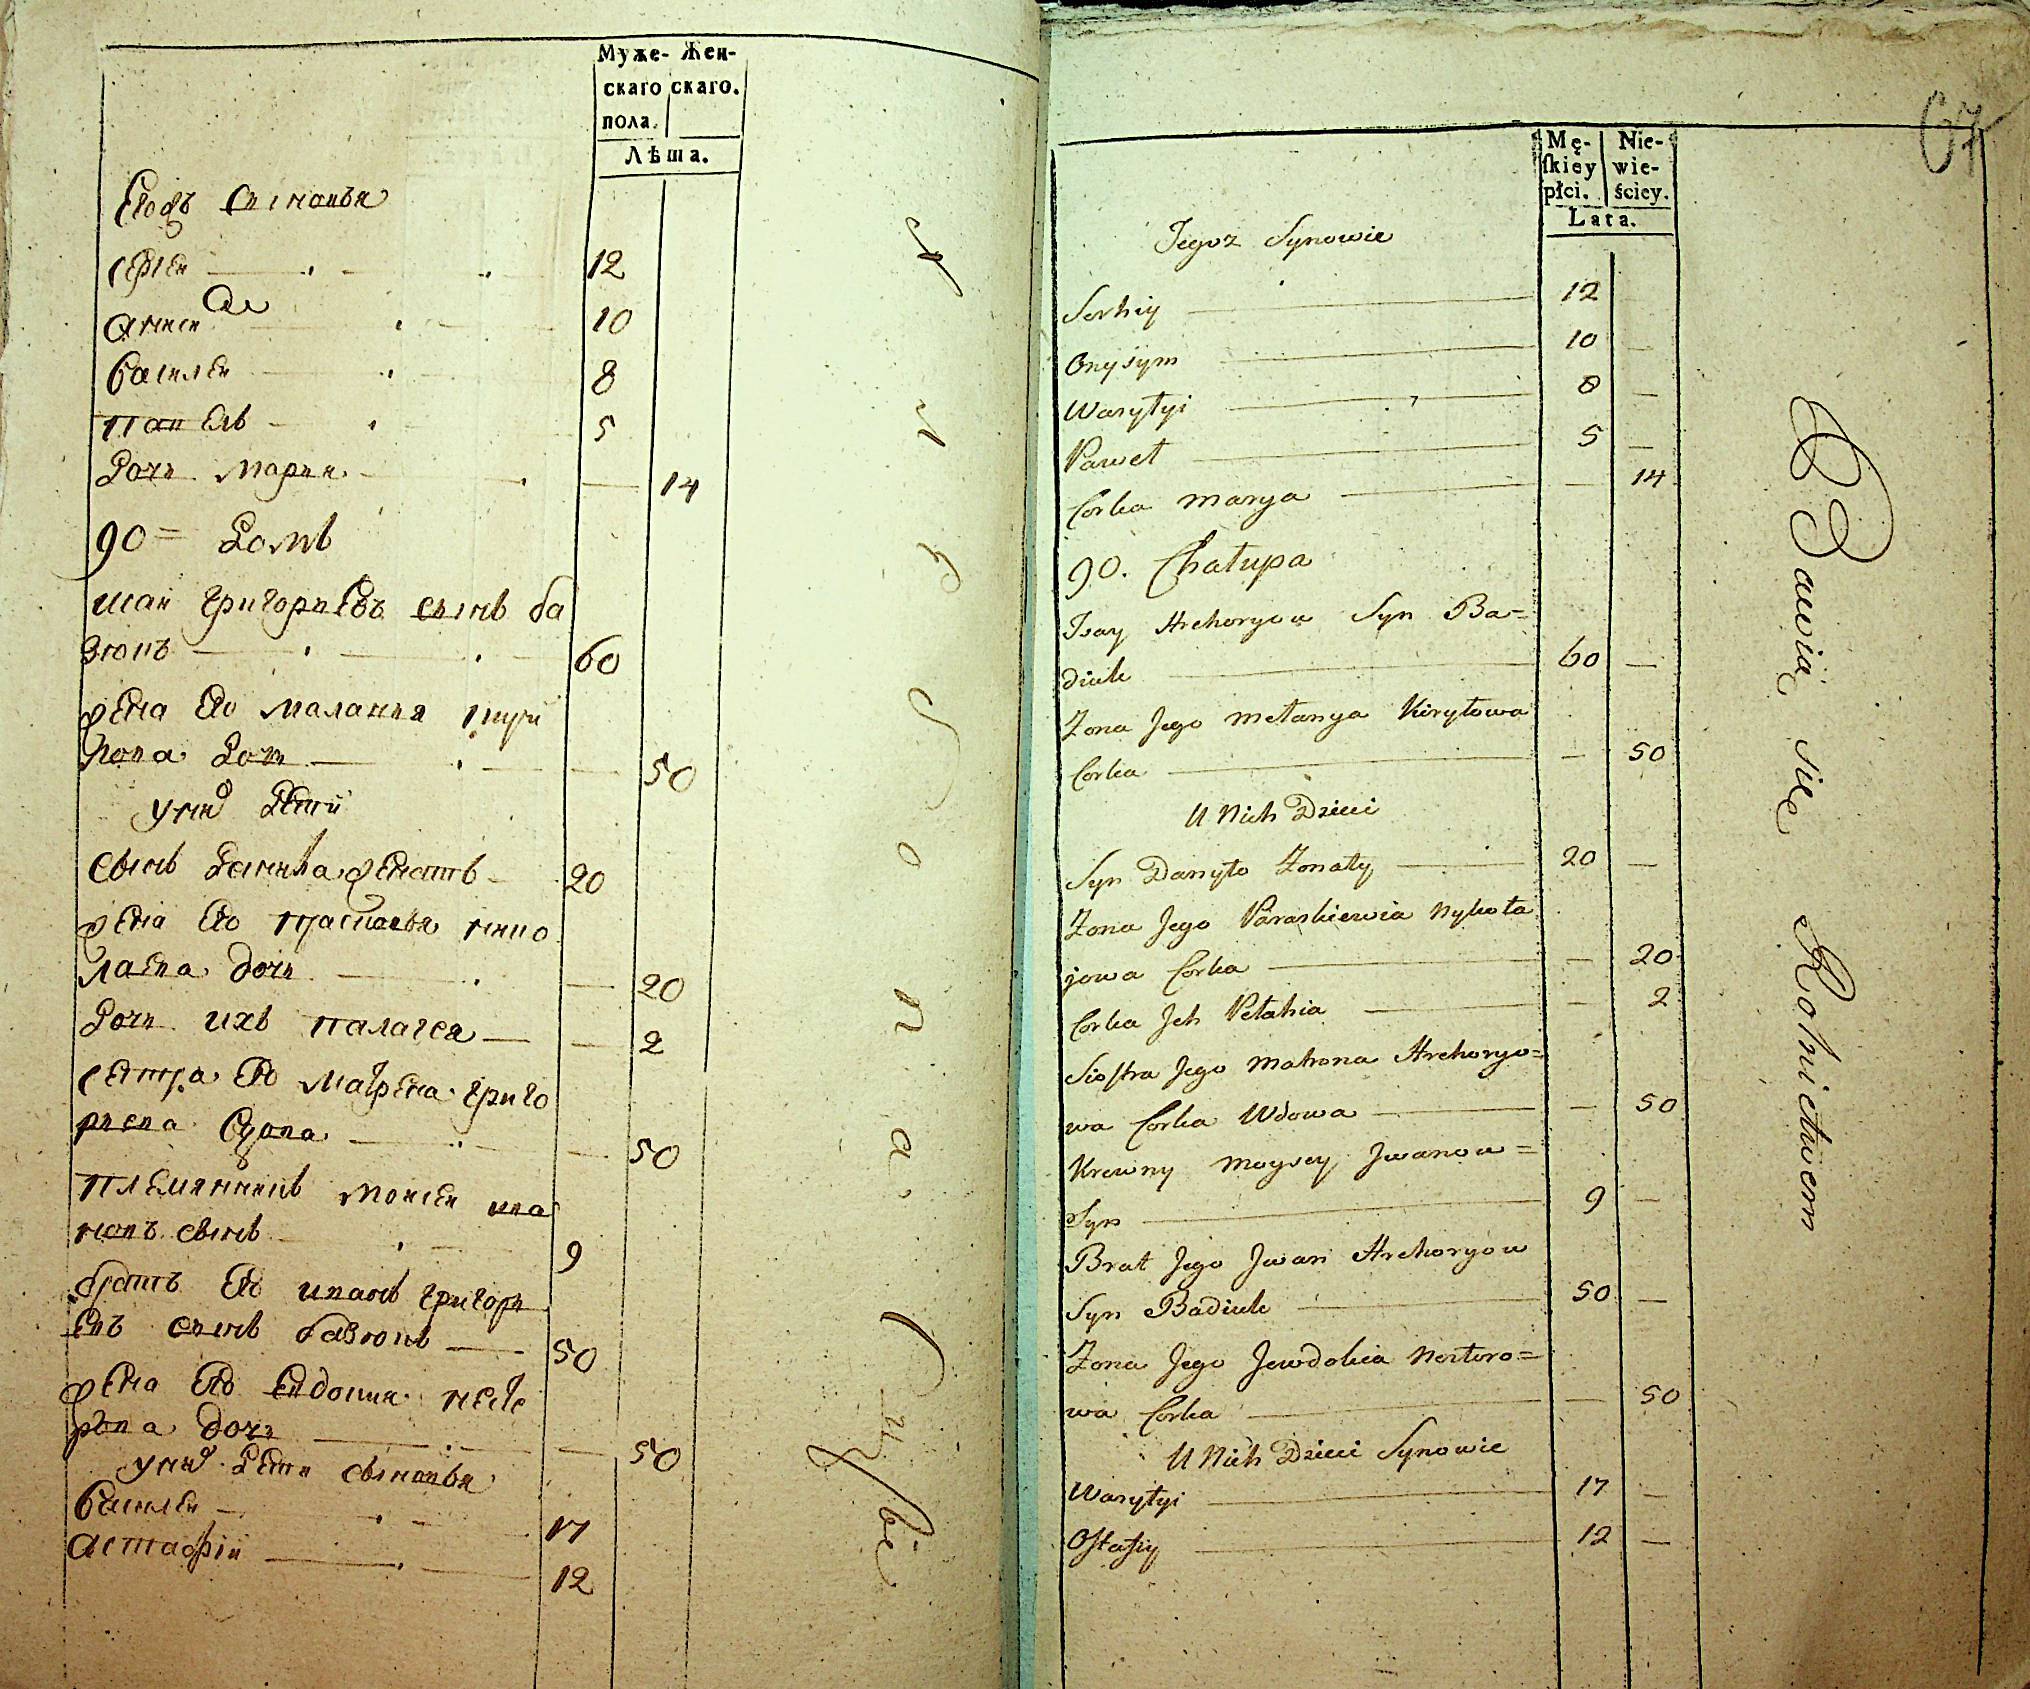 Муже- Жен-
скаго скаго.
пола.
Лѣта.
Егожъ сыновья
12
10
Василеи 8
Павелъ 5
Дочь Мария — 14
90 = Домъ
Григорьевъ сынъ ба
зюкъ 60
жена его Маланья
дочь — 50
у них дети
сынъ Данила женатъ 20
жена его Прасковья нико
лаева дочь — 20
дочь ихъ Палагея — 2
сестра его Матрена григо
риева вдова — 50
племянникъ Моисеи ива
новъ сынъ 9
братъ его иванъ григорь
евъ сынъ базюкъ 50
жена его Евдокия несте
рова дочь — 50
у них дети сыновья
Василеи 17
Астафіи 12
67
Mę- Nie-
skiey wie-
płci. ściey.
Lata.
Jegoż Synowie
Serhiy 12 —
Onysym 10 —
Wasyłyi 8 —
Paweł 5 —
Corka Marya — 14
90. Chałupa
Isay Hrehoryow Syn Ba=
diuk 60 —
Zona Jego Mełanya Kiryłowa
Corka — 50
U Nich Dzieci
Syn Danyło Zonaty 20 —
Zona Jego Paraskiewia Nykoła
jowa Corka — 20
Corka Jch Pełahia — 2
Siostra Jego Matrona Hrehoryo=
wa Corka Wdowa — 50
Krewny Moysey Jwanow=
Syn 9 —
Brat Jego Jwan Hrehoryow
Syn Badiuk 50 —
Zona Jego Jewdokia Nestoro=
wa Corka — 50
U Nich Dzieci Synowie
Wasyłyi 17 —
Ostafiy 12 —
Bawią się Rolnictwem